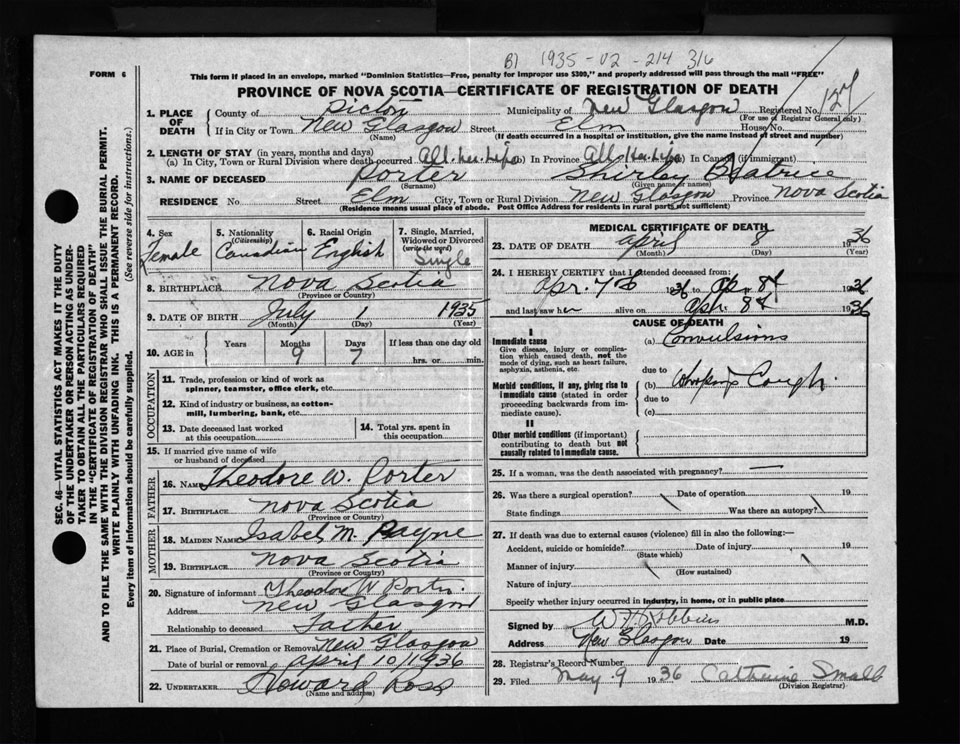 B1 1935-02-214 316
FORM 6
This form if placed in an envelope, marked "Dominion Statistics—Free, penalty for improper use $300," and properly addressed will pass through the mail "FREE"
PROVINCE OF NOVA SCOTIA—CERTIFICATE OF REGISTRATION OF DEATH
1. PLACE OF DEATH County of Pictou Municipality of New Glasgow Registered No. 127
(For use of Registrar General only)
If in City or Town New Glasgow Street Elm House No.
(Name) (If death occurred in a hospital or institution, give the name instead of street and number)
2. LENGTH OF STAY (in years, months and days)
(a) In City, Town or Rural Division where death occurred All.her.Life (b) In Province All.Her.Life (c) In Canada (if immigrant)
3. NAME OF DECEASED Porter Shirley Beatrice
(Surname) (Given name or names)
RESIDENCE No Street Elm City, Town or Rural Division New Glasgow Province Nova Scotia
(Residence means usual place of abode. Post Office Address for residents in rural parts not sufficient)
4. Sex Female
5. Nationality (Citizenship) Canadian
6. Racial Origin English
7. Single, Married, Widowed or Divorced (write the word) Single
8. BIRTHPLACE Nova Scotia
(Province or Country)
9. DATE OF BIRTH July 1 1935
(Month) (Day) (Year)
10. AGE in Years Months 9 Days 7 If less than one day old
hrs. or min.
OCCUPATION
11. Trade, profession or kind of work as spinner, teamster, office clerk, etc.
12. Kind of industry or business, as cotton-mill, lumbering, bank, etc.
13. Date deceased last worked at this occupation
14. Total yrs. spent in this occupation
15. If married give name of wife or husband of deceased
FATHER
16. Name Theodore W. Porter
17. BIRTHPLACE Nova Scotia
(Province or Country)
MOTHER
18. MAIDEN NAME Isabel M. Payne
19. BIRTHPLACE Nova Scotia
(Province or Country)
20. Signature of informant Theodore W Porter
Address New Glasgow
Relationship to deceased Father
21. Place of Burial, Cremation or Removal New Glasgow
Date of burial or removal April 10/1936
22. UNDERTAKER Howard Ross
(Name and address)
MEDICAL CERTIFICATE OF DEATH
23. DATE OF DEATH April 8 1936
(Month) (Day) (Year)
24. I HEREBY CERTIFY that I attended deceased from:
Apr. 7th 1936 to Ap. 8th 1936
and last saw her alive on Aph. 8th 1936
CAUSE OF DEATH
I
Immediate cause
Give disease, injury or complication which caused death, not the mode of dying, such as heart failure, asphyxia, asthenia, etc.
(a) Convulsions
due to
Morbid conditions, if any, giving rise to immediate cause (stated in order proceeding backwards from immediate cause).
(b) Whooping Cough.
due to
(c)
II
Other morbid conditions (if important) contributing to death but not causally related to immediate cause.
25. If a woman, was the death associated with pregnancy? —
26. Was there a surgical operation? Date of operation 19
State findings Was there an autopsy?
27. If death was due to external causes (violence) fill in also the following:—
Accident, suicide or homicide? Date of injury 19
(State which)
Manner of injury
(How sustained)
Nature of injury
Specify whether injury occurred in industry, in home, or in public place
Signed by M.D.
Address New Glasgow Date 19
28. Registrar's Record Number
29. Filed May 9 1936 Catherine Small
(Division Registrar)
SEC. 46. VITAL STATISTICS ACT MAKES IT THE DUTY
OF THE UNDERTAKER OR PERSON ACTING AS UNDER-
TAKER TO OBTAIN ALL THE PARTICULARS REQUIRED
IN THE "CERTIFICATE OF REGISTRATION OF DEATH"
AND TO FILE THE SAME WITH THE DIVISION REGISTRAR WHO SHALL ISSUE THE BURIAL PERMIT.
WRITE PLAINLY WITH UNFADING INK. THIS IS A PERMANENT RECORD.
Every item of information should be carefully supplied. (See reverse side for instructions.)